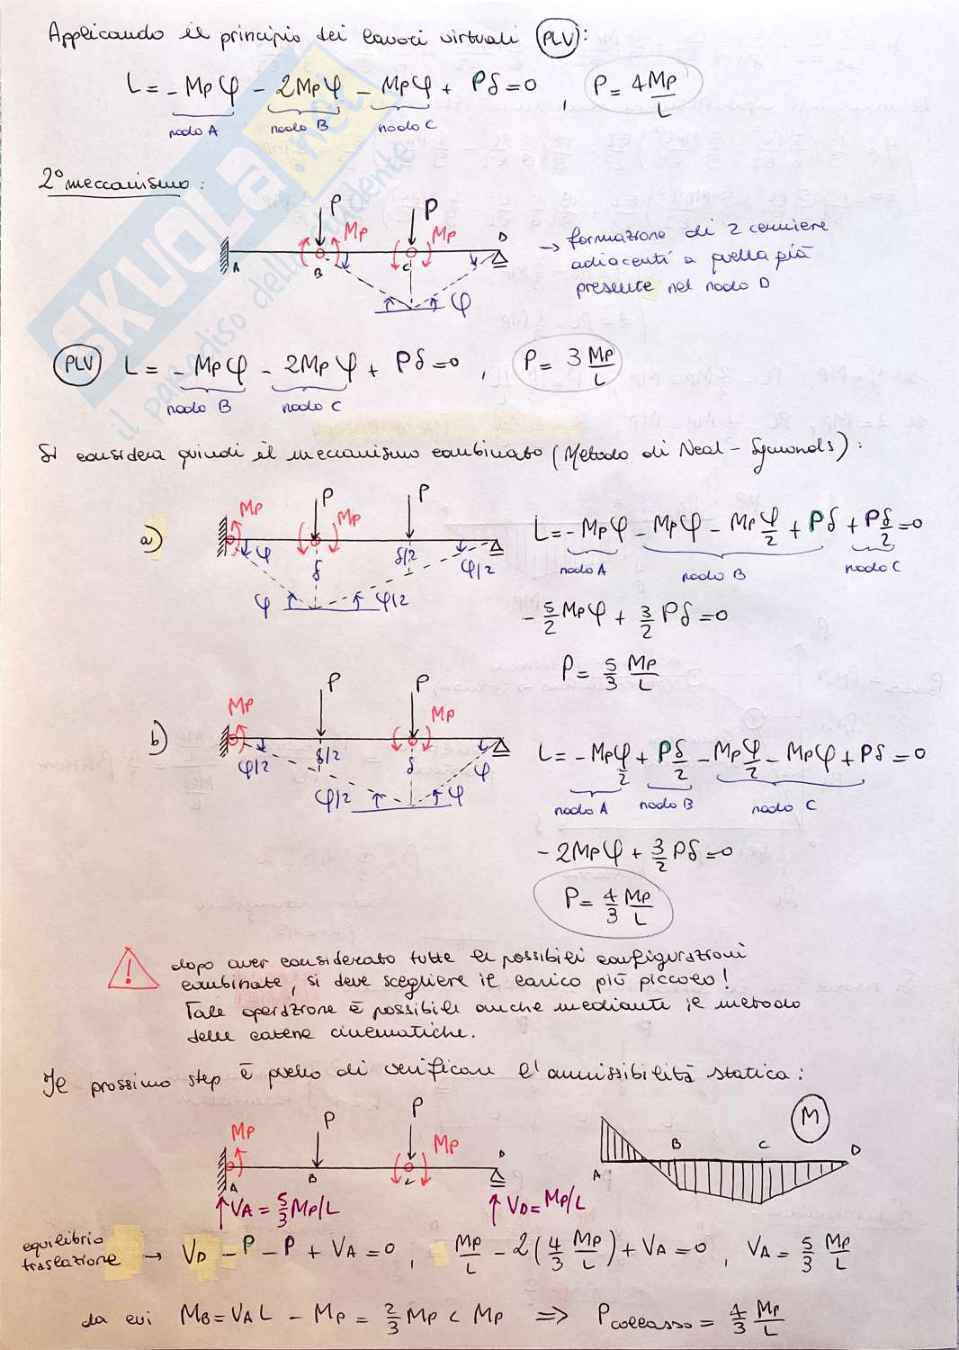 Applicando il principio dei lavori virtuali (PLV):
L = - Mp φ - 2Mp φ - Mp φ + Pδ = 0 , P = 4Mp/L
nodo A nodo B nodo C
2° meccanismo:
P P
Mp Mp
A B C D
φ
→ formazione di 2 cerniere
adiacenti a quella già
presente nel nodo D
PLV L = - Mp φ - 2Mp φ + Pδ = 0 , P = 3 Mp/L
nodo B nodo C
Si considera quindi il meccanismo combinato (Metodo di Neal - Symonds):
a)
P P
Mp Mp
φ δ δ/2 φ/2
φ φ/2
L = - Mp φ - Mp φ - Mp φ/2 + Pδ + P δ/2 = 0
nodo A nodo B nodo C
- 5/2 Mp φ + 3/2 Pδ = 0
P = 5/3 Mp/L
b)
P P
Mp Mp
φ/2 δ/2 δ φ
φ/2 φ
L = - Mp φ/2 + P δ/2 - Mp φ/2 - Mp φ + Pδ = 0
nodo A nodo B nodo C
- 2Mp φ + 3/2 Pδ = 0
P = 4/3 Mp/L
! dopo aver considerato tutte le possibili configurazioni
combinate, si deve scegliere il carico più piccolo!
Tale operazione è possibile anche mediante il metodo
delle catene cinematiche.
Il prossimo step è quello di verificare l'ammissibilità statica:
P P
Mp Mp
A B C D
VA = 5/3 Mp/L VD = Mp/L
M
A B C D
equilibrio
traslazione → VD - P - P + VA = 0 , Mp/L - 2(4/3 Mp/L) + VA = 0 , VA = 5/3 Mp/L
da cui MB = VA L - Mp = 2/3 Mp < Mp ⟹ Pcollasso = 4/3 Mp/L
SKUOLA.net
il paradiso dello studente